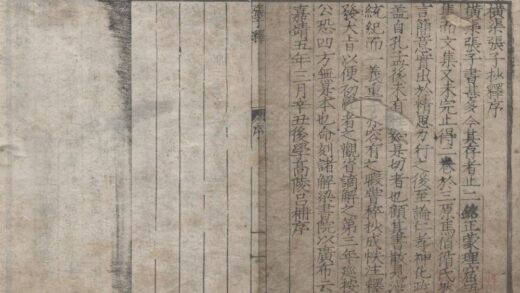 橫渠張子抄釋序
橫渠張子書甚多今其存者止二銘正蒙理窟語
集而文集又未完止得二卷於三原馬伯循氏然
言簡意實出於精思力行之後至論仁孝神化政
蓋自孔孟後未有切者也顧其書散見漫
統紀而一義重出亦容有之暇嘗稡抄成帙注釋
發大旨以便初學者之觀省謫解之第三年巡按
公恐四方無是本也命刻諸解梁書院以廣布云
嘉靖五年三月辛丑後學高陵呂柟序
序